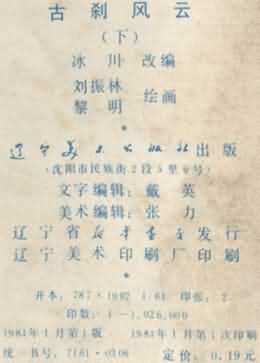 古刹风云
(下)
冰川 改编
刘振林
黎明 绘画
辽宁美术出版社出版
(沈阳市民族街2段5里6号)
文字编辑:戴英
美术编辑:张力
辽宁省新华书店发行
辽宁美术印刷厂印刷
开本:787×1092 1/64 印张:2
印数:1—1,026,000
1984年1月第1版 1984年1月第1次印刷
统一书号:7161·0306 定价:0.19元